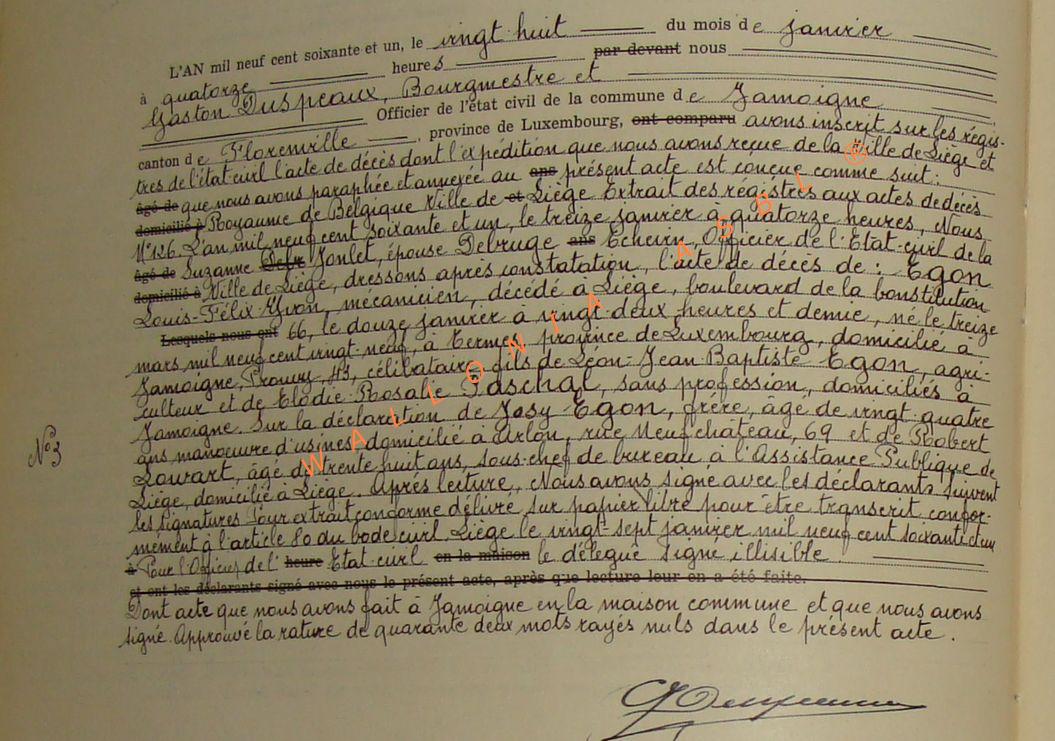 L'AN mil neuf cent soixante et un, le vingt huit du mois de janvier
à quatorze heures par devant nous
Gaston Duspeaux, Bourgmestre et
Officier de l'état civil de la commune de Jamoigne
canton de Florenville, province de Luxembourg, ont comparu avons inscrit sur les regis-
tres de l'état civil l'acte de décès dont l'expédition que nous avons reçue de la Ville de Liège et
âgé de que nous avons paraphée et annexée au ans présent acte est conçue comme suit:
domicilié à Royaume de Belgique Ville de et Liège Extrait des régistres aux actes de décès
N° 126. L'an mil neuf cent soixante et un, le treize janvier à quatorze heures, Nous
âgé de Suzanne Jonlet, épouse Debruge ans Echevin, Officier de l'Etat-civil de la
domicilié à Ville de Liège, dressons après constatation, l'acte de décès de : Egon
Louis-Félix Yvon, mécanicien, décédé à Liège, boulevard de la Constitution
Lesquels nous ont 66, le douze janvier à vingt-deux heures et demie, né le treize
mars mil neuf cent vingt-neuf, à Termes province de Luxembourg, domicilié à
Jamoigne, Prouvy, 43, célibataire, fils de Léon-Jean-Baptiste Egon, agri-
culteur et de Elodie-Rosalie Paschal, sans profession, domiciliés à
Jamoigne. Sur la déclaration de Josy Egon, frère, âgé de vingt-quatre
ans manoeuvre d'usines domicilié à Arlon, rue Neufchâteau, 69 et de Robert
Louvart, âgé de trente huit ans, sous-chef de bureau à l'Assistance Publique de
N° 3
Liège, domicilié à Liège. Après lecture, Nous avons signé avec les déclarants suivent
les signatures Pour extrait conforme délivré sur papier libre pour être transcrit confor-
mément à l'article 80 du Code civil Liège le vingt-sept janvier mil neuf cent soixante et un
à Pour l'Officier de l' heure Etat-civil en la maison le délégué signé illisible.
et ont les déclarants signé avec nous le présent acte, après que lecture leur en a été faite.
Dont acte que nous avons fait à Jamoigne en la maison commune et que nous avons
signé. Approuvé la rature de quarante deux mots rayés nuls dans le présent acte.
WALLONIA ASBL ®